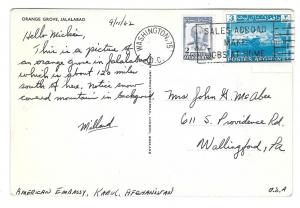 ORANGE GROVE, JALALABAD
9/11/62
Hello Nickie,
This is a picture of
an orange grove in Jalalabad
which is about 120 miles
south of here. Notice snow
covered mountain in background
Millard
AMERICAN EMBASSY, KABUL, AFGHANISTAN
WASHINGTON, 25
D.C.
2
SALES ABROAD
MAKE
JOBS AT HOME
POSTES AFGHAN
Mrs John G. McAbee
611 S. Providence Rd.
Wallingford, Pa
U.S.A